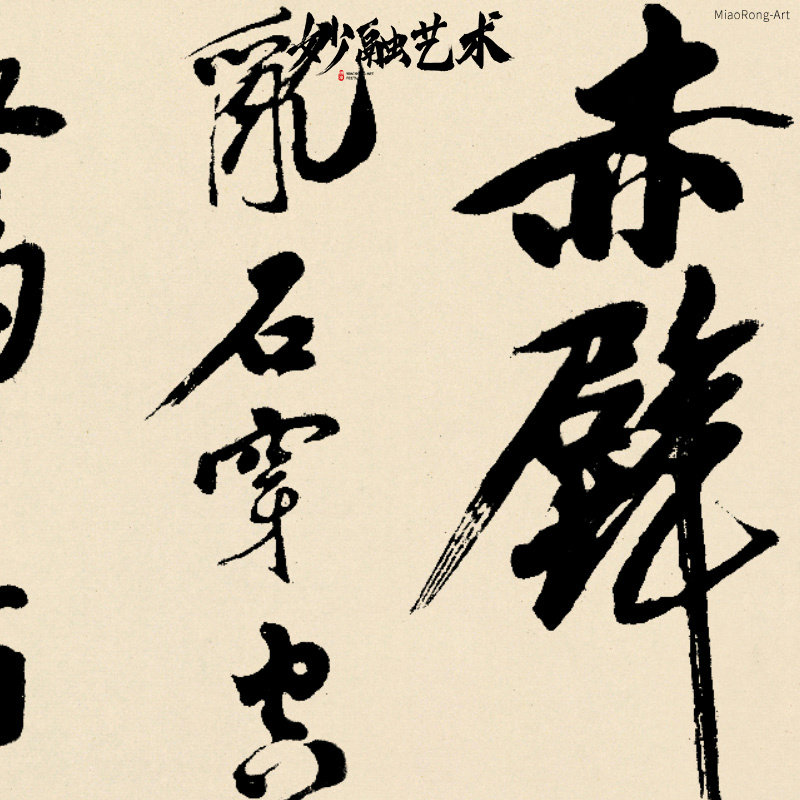 妙融艺术
MiaoRong-Art
赤壁
亂石穿空